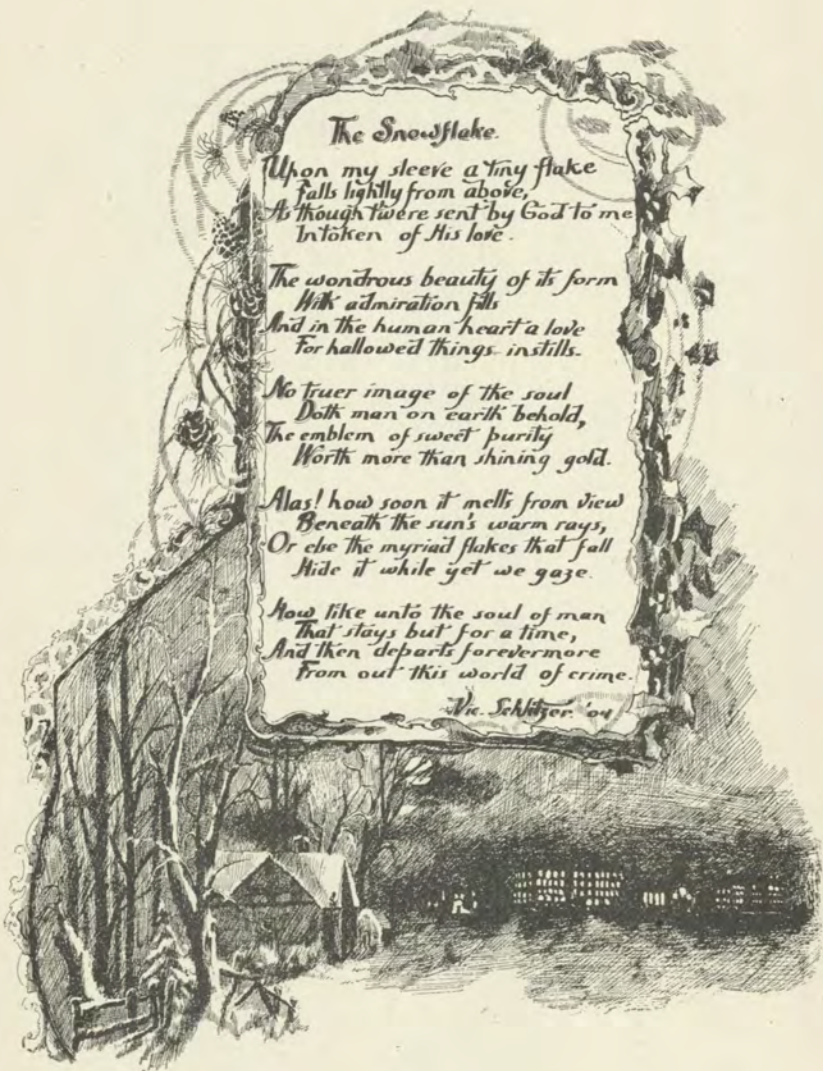 The Snowflake.
Upon my sleeve a tiny flake
Falls lightly from above,
As though 'twere sent by God to me
In token of His love.
The wondrous beauty of its form
With admiration fills
And in the human heart a love
For hallowed things instills.
No truer image of the soul
Doth man on earth behold,
The emblem of sweet purity
Worth more than shining gold.
Alas! how soon it melts from view
Beneath the sun's warm rays,
Or else the myriad flakes that fall
Hide it while yet we gaze.
How like unto the soul of man
That stays but for a time,
And then departs forevermore
From out this world of crime.
Vic. Schlitzer '04